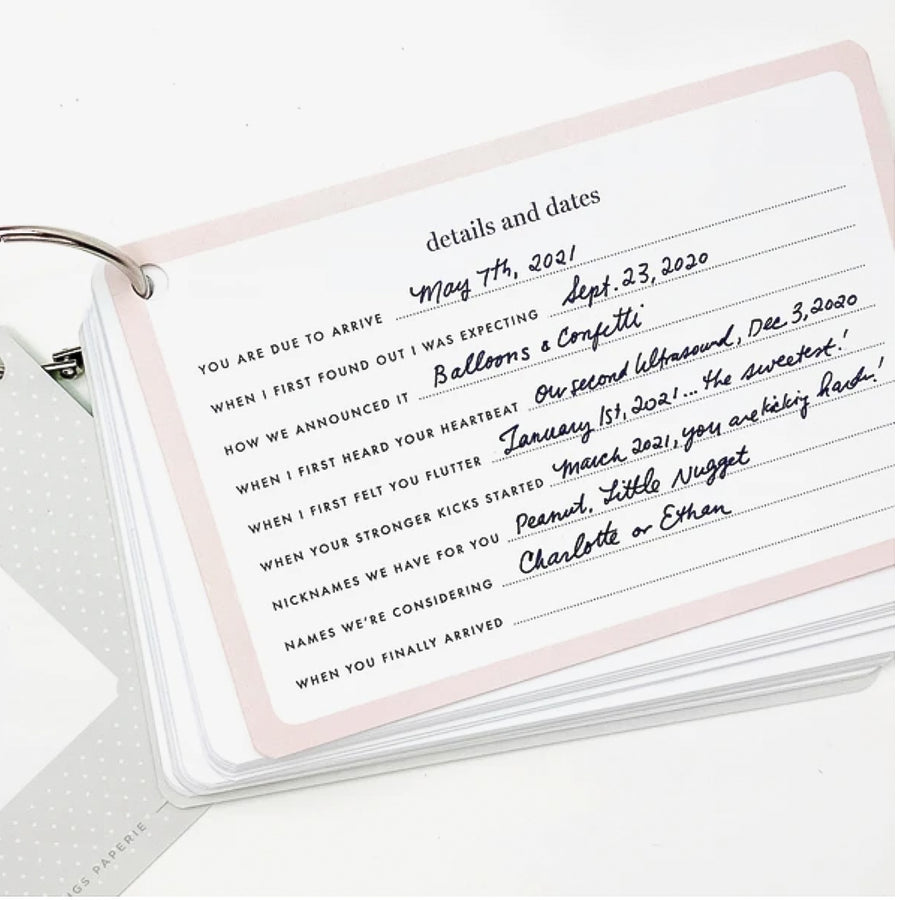 details and dates
YOU ARE DUE TO ARRIVE May 7th, 2021
WHEN I FIRST FOUND OUT I WAS EXPECTING Sept. 23, 2020
HOW WE ANNOUNCED IT Balloons & Confetti
WHEN I FIRST HEARD YOUR HEARTBEAT Our second Ultrasound, Dec 3, 2020
WHEN I FIRST FELT YOU FLUTTER January 1st, 2021... the sweetest!
WHEN YOUR STRONGER KICKS STARTED March 2021, you are kicking hard!
NICKNAMES WE HAVE FOR YOU Peanut, Little Nugget
NAMES WE'RE CONSIDERING Charlotte or Ethan
WHEN YOU FINALLY ARRIVED
GS PAPERIE